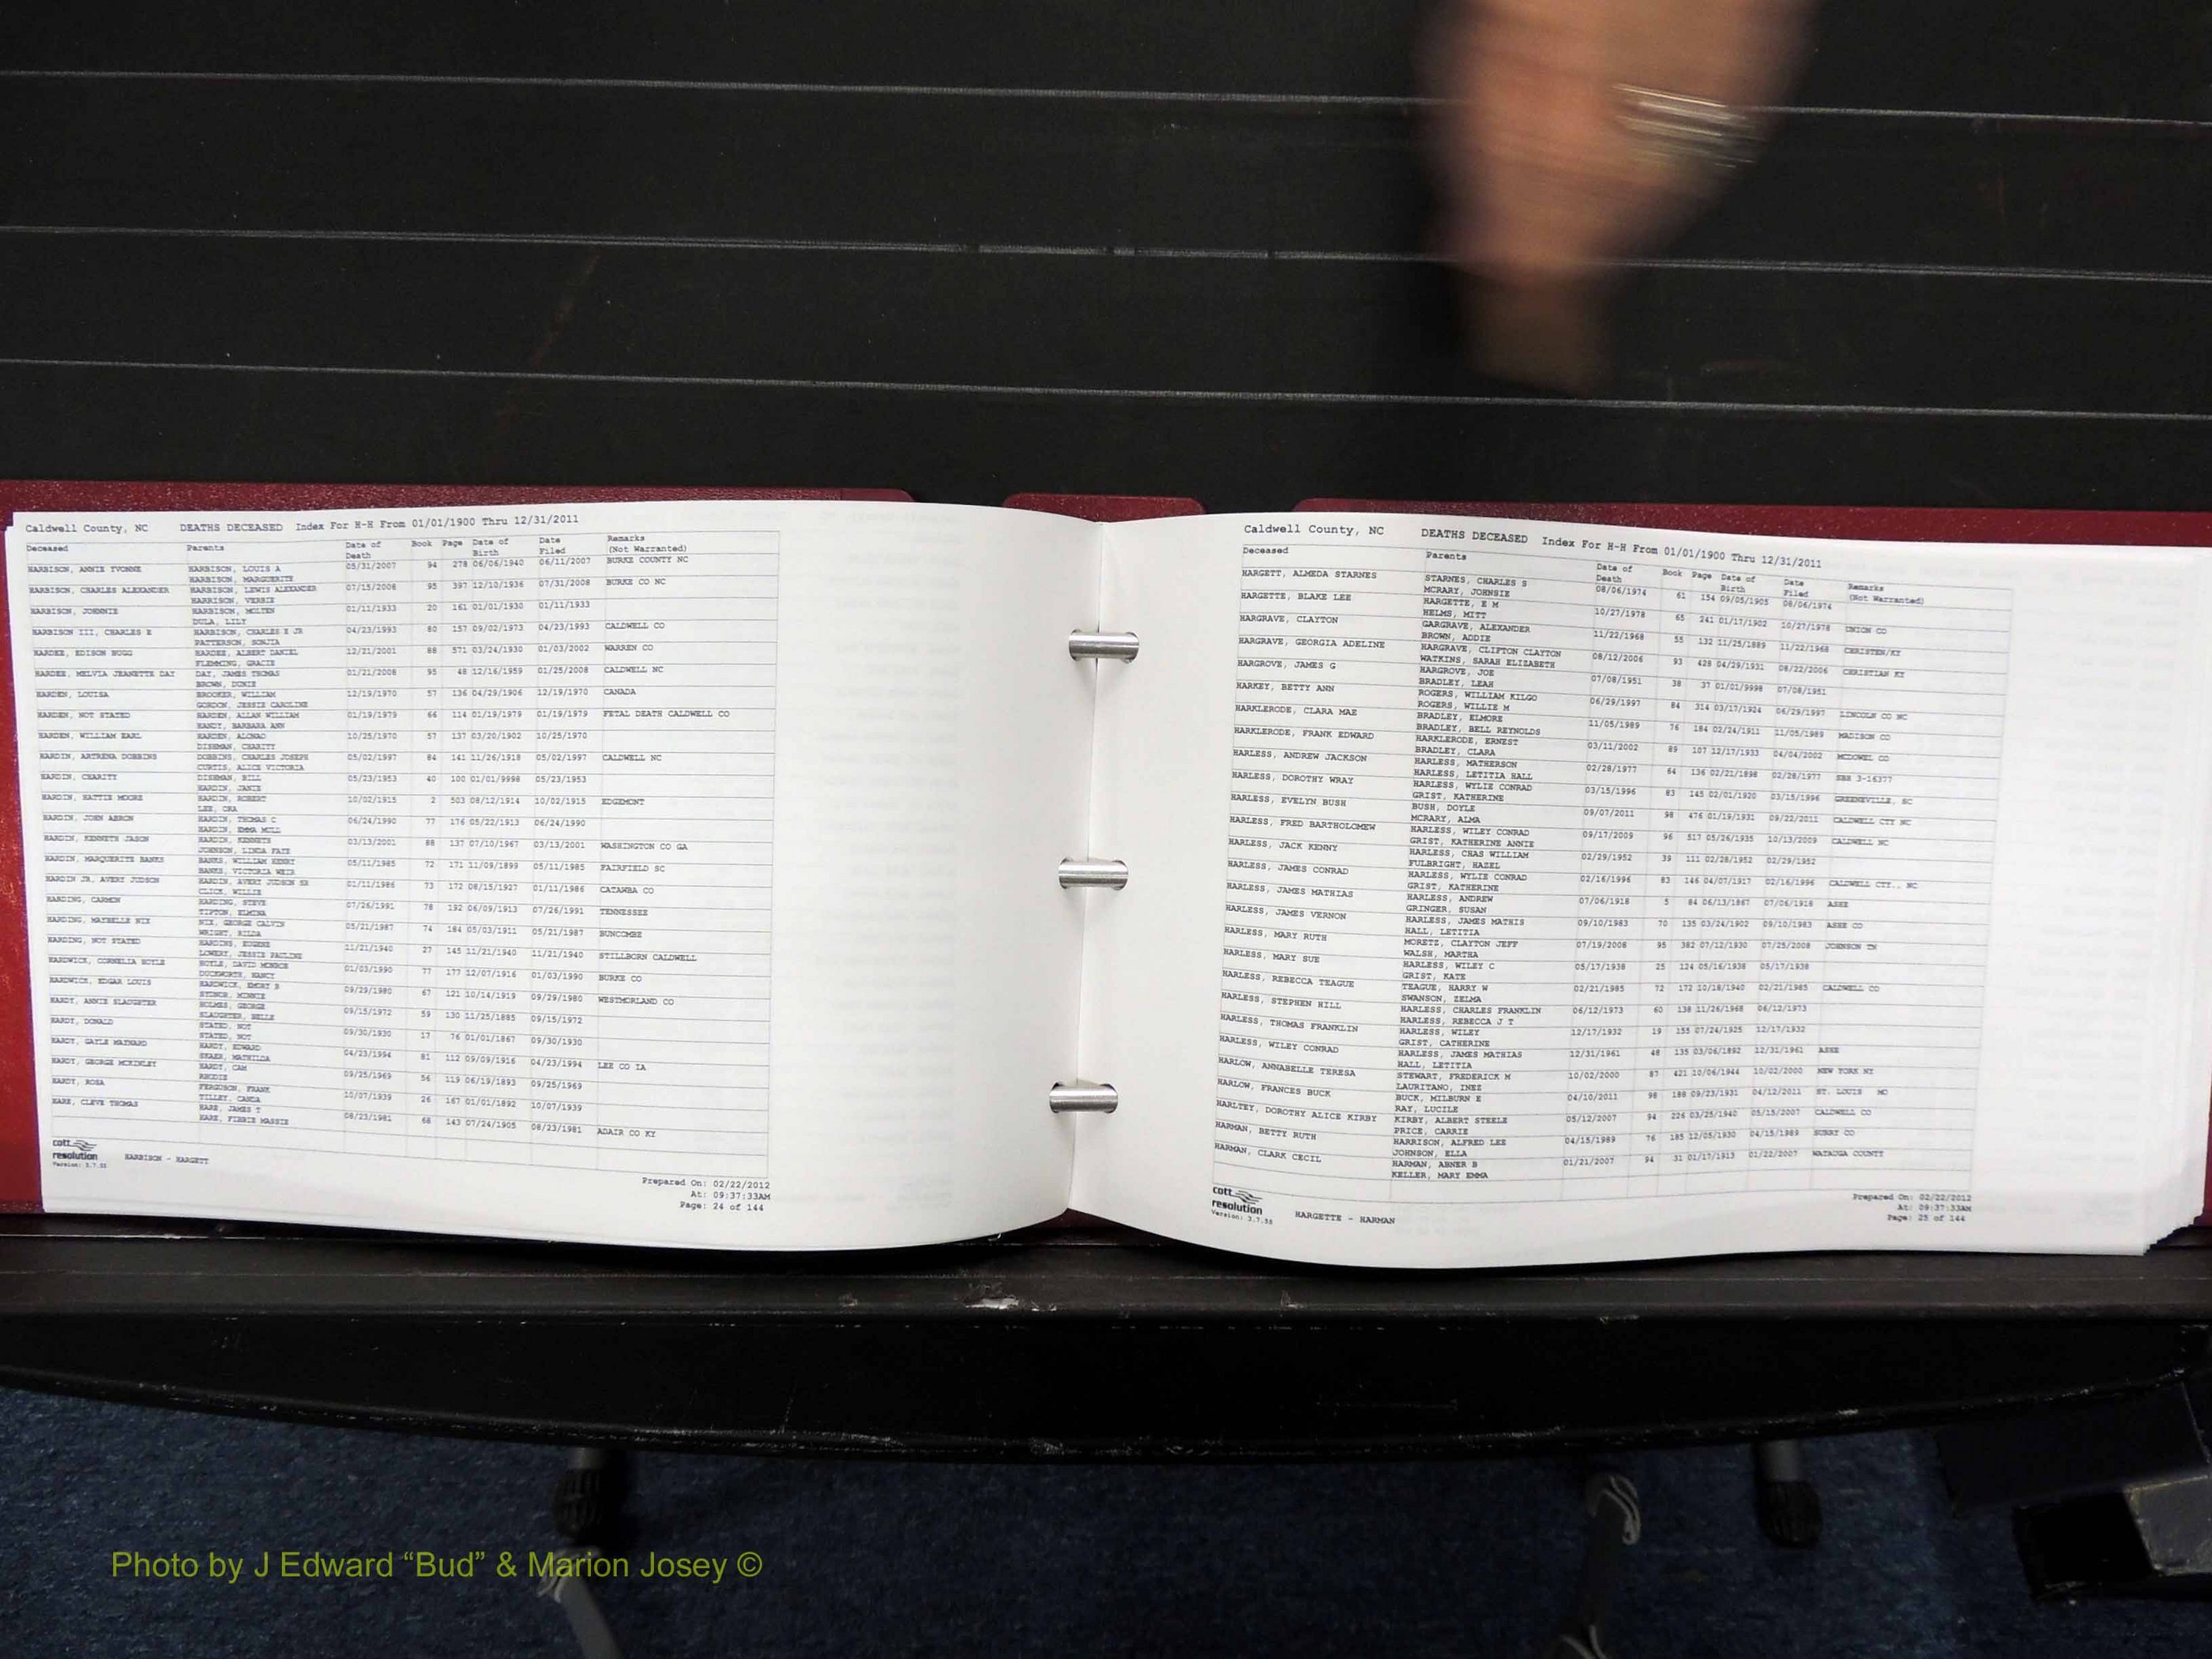 Caldwell County, NC DEATHS DECEASED Index For H-H From 01/01/1900 Thru 12/31/2011
Deceased Parents Date of Death Book Page Date of Birth Date Filed Remarks (Not Warranted)
HARBISON, ANNIE YVONNE HARBISON, LOUIS A 05/31/2007 94 278 06/06/1940 06/11/2007 BURKE COUNTY NC
HARBISON, MARGUERITE
HARBISON, CHARLES ALEXANDER HARBISON, LEWIS ALEXANDER 07/15/2008 95 397 12/10/1936 07/31/2008 BURKE CO NC
HARBISON, VERSIE
HARBISON, JOHNNIE HARBISON, MOLTEN 01/11/1933 20 161 01/01/1930 01/11/1933
DULA, LILY
HARBISON III, CHARLES E HARBISON, CHARLES E JR 04/23/1993 80 157 09/02/1973 04/23/1993 CALDWELL CO
PATTERSON, SONJIA
HARDEE, EDISON BUGG HARDEE, ALBERT DANIEL 12/21/2001 88 571 03/24/1930 01/03/2002 WARREN CO
FLEMMING, GRACIE
HARDEE, MELVIA JEANETTE DAY DAY, JAMES THOMAS 01/21/2008 95 48 12/16/1959 01/25/2008 CALDWELL NC
BROWN, DOXIE
HARDEN, LOUISA BROOKER, WILLIAM 12/19/1970 57 136 04/29/1906 12/19/1970 CANADA
GORDON, JESSIE CAROLINE
HARDEN, NOT STATED HARDEN, ALLAN WILLIAM 01/19/1979 66 114 01/19/1979 01/19/1979 FETAL DEATH CALDWELL CO
HANDY, BARBARA ANN
HARDEN, WILLIAM EARL HARDEN, ALONAO 10/25/1970 57 137 03/20/1902 10/25/1970
DISHMAN, CHARITY
HARDIN, ARTRENA DOBBINS DOBBINS, CHARLES JOSEPH 05/02/1997 84 141 11/26/1918 05/02/1997 CALDWELL NC
CURTIS, ALICE VICTORIA
HARDIN, CHARITY DISHMAN, BILL 05/23/1953 40 100 01/01/9998 05/23/1953
HARDIN, JANIE
HARDIN, HATTIE MOORE HARDIN, ROBERT 10/02/1915 2 503 08/12/1914 10/02/1915 EDGEMONT
LEE, ORA
HARDIN, JOHN AERON HARDIN, THOMAS C 06/24/1990 77 176 05/22/1913 06/24/1990
HARDIN, EMMA MOLL
HARDIN, KENNETH JASON HARDIN, KENNETH 03/13/2001 88 137 07/10/1967 03/13/2001 WASHINGTON CO GA
JOHNSON, LINDA FAYE
HARDIN, MARQUERITE BANKS BANKS, WILLIAM HENRY 05/11/1985 72 171 11/09/1899 05/11/1985 FAIRFIELD SC
BANKS, VICTORIA WEIR
HARDIN JR, AVERY JUDSON HARDIN, AVERY JUDSON SR 01/11/1986 73 172 08/15/1927 01/11/1986 CATAWBA CO
CLICK, WILLIE
HARDING, CARMON HARDING, STEVE 07/26/1991 78 192 06/09/1913 07/26/1991 TENNESSEE
TIPTON, ELMINA
HARDING, MAYBELLE NIX NIX, GEORGE CALVIN 05/21/1987 74 184 05/03/1911 05/21/1987 BUNCOMBE
WRIGHT, HILDA
HARDING, NOT STATED HARDING, EUGENE 11/21/1940 27 145 11/21/1940 11/21/1940 STILLBORN CALDWELL
LOWERY, JESSIE PAULINE
HARDWICK, CORNELIA HOYLE HOYLE, DAVID MONROE 01/03/1990 77 177 12/07/1916 01/03/1990 BURKE CO
DUCKWORTH, NANCY
HARDWICK, EDGAR LOUIS HARDWICK, EMORY B 09/29/1980 67 121 10/14/1919 09/29/1980 WESTMORLAND CO
SYDNOR, MINNIE
HARDY, ANNIE SLAUGHTER HOLMES, GEORGE 09/15/1972 59 130 11/25/1885 09/15/1972
SLAUGHTER, BELLE
HARDY, DONALD STATED, NOT 09/30/1930 17 76 01/01/1867 09/30/1930
STATED, NOT
HARDY, GAYLE MAYNARD HARDY, EDWARD 04/23/1994 81 112 09/09/1916 04/23/1994 LEE CO IA
SHAER, MATHILDA
HARDY, GEORGE MCKINLEY HARDY, CAM 09/25/1969 56 119 06/19/1893 09/25/1969
RHODIE
HARDY, ROSA FERGUSON, FRANK 10/07/1939 26 167 01/01/1892 10/07/1939
TILLEY, CANDA
HARE, CLEVE THOMAS HARE, JAMES T 08/23/1981 68 143 07/24/1905 08/23/1981 ADAIR CO KY
HARE, FIBBIE MASSIE
cott
resolution HARBISON - HARGETT
Version: 3.7.55
Prepared On: 02/22/2012
At: 09:37:33AM
Page: 24 of 144
Caldwell County, NC DEATHS DECEASED Index For H-H From 01/01/1900 Thru 12/31/2011
Deceased Parents Date of Death Book Page Date of Birth Date Filed Remarks (Not Warranted)
HARGETT, ALMEDA STARNES STARNES, CHARLES S 08/06/1974 61 154 09/05/1905 08/06/1974
MCRARY, JOHNSIE
HARGETTE, BLAKE LEE HARGETTE, E M 10/27/1978 65 241 01/17/1902 10/27/1978 UNION CO
HELMS, MITT
HARGRAVE, CLAYTON GARGRAVE, ALEXANDER 11/22/1968 55 132 11/25/1889 11/22/1968 CHRISTEN/KY
BROWN, ADDIE
HARGRAVE, GEORGIA ADELINE HARGRAVE, CLIFTON CLAYTON 08/12/2006 93 428 04/29/1931 08/22/2006 CHRISTIAN KY
WATKINS, SARAH ELIZABETH
HARGROVE, JAMES G HARGROVE, JOE 07/08/1951 38 37 01/01/9998 07/08/1951
BRADLEY, LEAH
HARKEY, BETTY ANN ROGERS, WILLIAM KILGO 06/29/1997 84 314 03/17/1924 06/29/1997 LINCOLN CO NC
ROGERS, WILLIE M
HARKLERODE, CLARA MAE BRADLEY, ELMORE 11/05/1989 76 184 02/24/1911 11/05/1989 MADISON CO
BRADLEY, BELL REYNOLDS
HARKLERODE, FRANK EDWARD HARKLERODE, ERNEST 03/11/2002 89 107 12/17/1933 04/04/2002 MCDOWEL CO
BRADLEY, CLARA
HARLESS, ANDREW JACKSON HARLESS, MATHERSON 02/28/1977 64 136 02/21/1898 02/28/1977 SBR 3-16377
HARLESS, LETITIA HALL
HARLESS, DOROTHY WRAY HARLESS, WYLIE CONRAD 03/15/1996 83 145 02/01/1920 03/15/1996 GREENEVILLE, SC
GRIST, KATHERINE
HARLESS, EVELYN BUSH BUSH, DOYLE 09/07/2011 98 476 01/19/1931 09/22/2011 CALDWELL CTY NC
MCRARY, ALMA
HARLESS, FRED BARTHOLOMEW HARLESS, WILEY CONRAD 09/17/2009 96 517 05/26/1935 10/13/2009 CALDWELL NC
GRIST, KATHERINE ANNIE
HARLESS, JACK KENNY HARLESS, CHAS WILLIAM 02/29/1952 39 111 02/28/1952 02/29/1952
FULBRIGHT, HAZEL
HARLESS, JAMES CONRAD HARLESS, WYLIE CONRAD 02/16/1996 83 146 04/07/1917 02/16/1996 CALDWELL CTY., NC
GRIST, KATHERINE
HARLESS, JAMES MATHIAS HARLESS, ANDREW 07/06/1918 5 84 06/13/1867 07/06/1918 ASHE
GRINGER, SUSAN
HARLESS, JAMES VERNON HARLESS, JAMES MATHIS 09/10/1983 70 135 03/24/1902 09/10/1983 ASHE CO
HALL, LETITIA
HARLESS, MARY RUTH MORETZ, CLAYTON JEFF 07/19/2008 95 382 07/12/1930 07/25/2008 JOHNSON TN
WALSH, MARTHA
HARLESS, MARY SUE HARLESS, WILEY C 05/17/1938 25 124 05/16/1938 05/17/1938
GRIST, KATE
HARLESS, REBECCA TEAGUE TEAGUE, HARRY W 02/21/1985 72 172 10/18/1940 02/21/1985 CALDWELL CO
SWANSON, ZELMA
HARLESS, STEPHEN HILL HARLESS, CHARLES FRANKLIN 06/12/1973 60 138 11/26/1968 06/12/1973
HARLESS, REBECCA J T
HARLESS, THOMAS FRANKLIN HARLESS, WILEY 12/17/1932 19 155 07/24/1925 12/17/1932
GRIST, CATHERINE
HARLESS, WILEY CONRAD HARLESS, JAMES MATHIAS 12/31/1961 48 135 03/06/1892 12/31/1961 ASHE
HALL, LETITIA
HARLOW, ANNABELLE TERESA STEWART, FREDERICK M 10/02/2000 87 421 10/06/1944 10/02/2000 NEW YORK NY
LAURITANO, INEZ
HARLOW, FRANCES BUCK BUCK, MILBURN E 04/10/2011 98 188 09/23/1931 04/12/2011 ST. LOUIS MO
RAY, LUCILE
HARLTEY, DOROTHY ALICE KIRBY KIRBY, ALBERT STEELE 05/12/2007 94 226 03/25/1940 05/15/2007 CALDWELL CO
PRICE, CARRIE
HARMAN, BETTY RUTH HARRISON, ALFRED LEE 04/15/1989 76 185 12/05/1930 04/15/1989 SURRY CO
JOHNSON, ELLA
HARMAN, CLARK CECIL HARMAN, ABNER B 01/21/2007 94 31 01/17/1913 01/22/2007 WATAUGA COUNTY
KELLER, MARY EMMA
cott
resolution HARGETTE - HARMAN
Version: 3.7.55
Prepared On: 02/22/2012
At: 09:37:33AM
Page: 25 of 144
Photo by J Edward “Bud” & Marion Josey ©